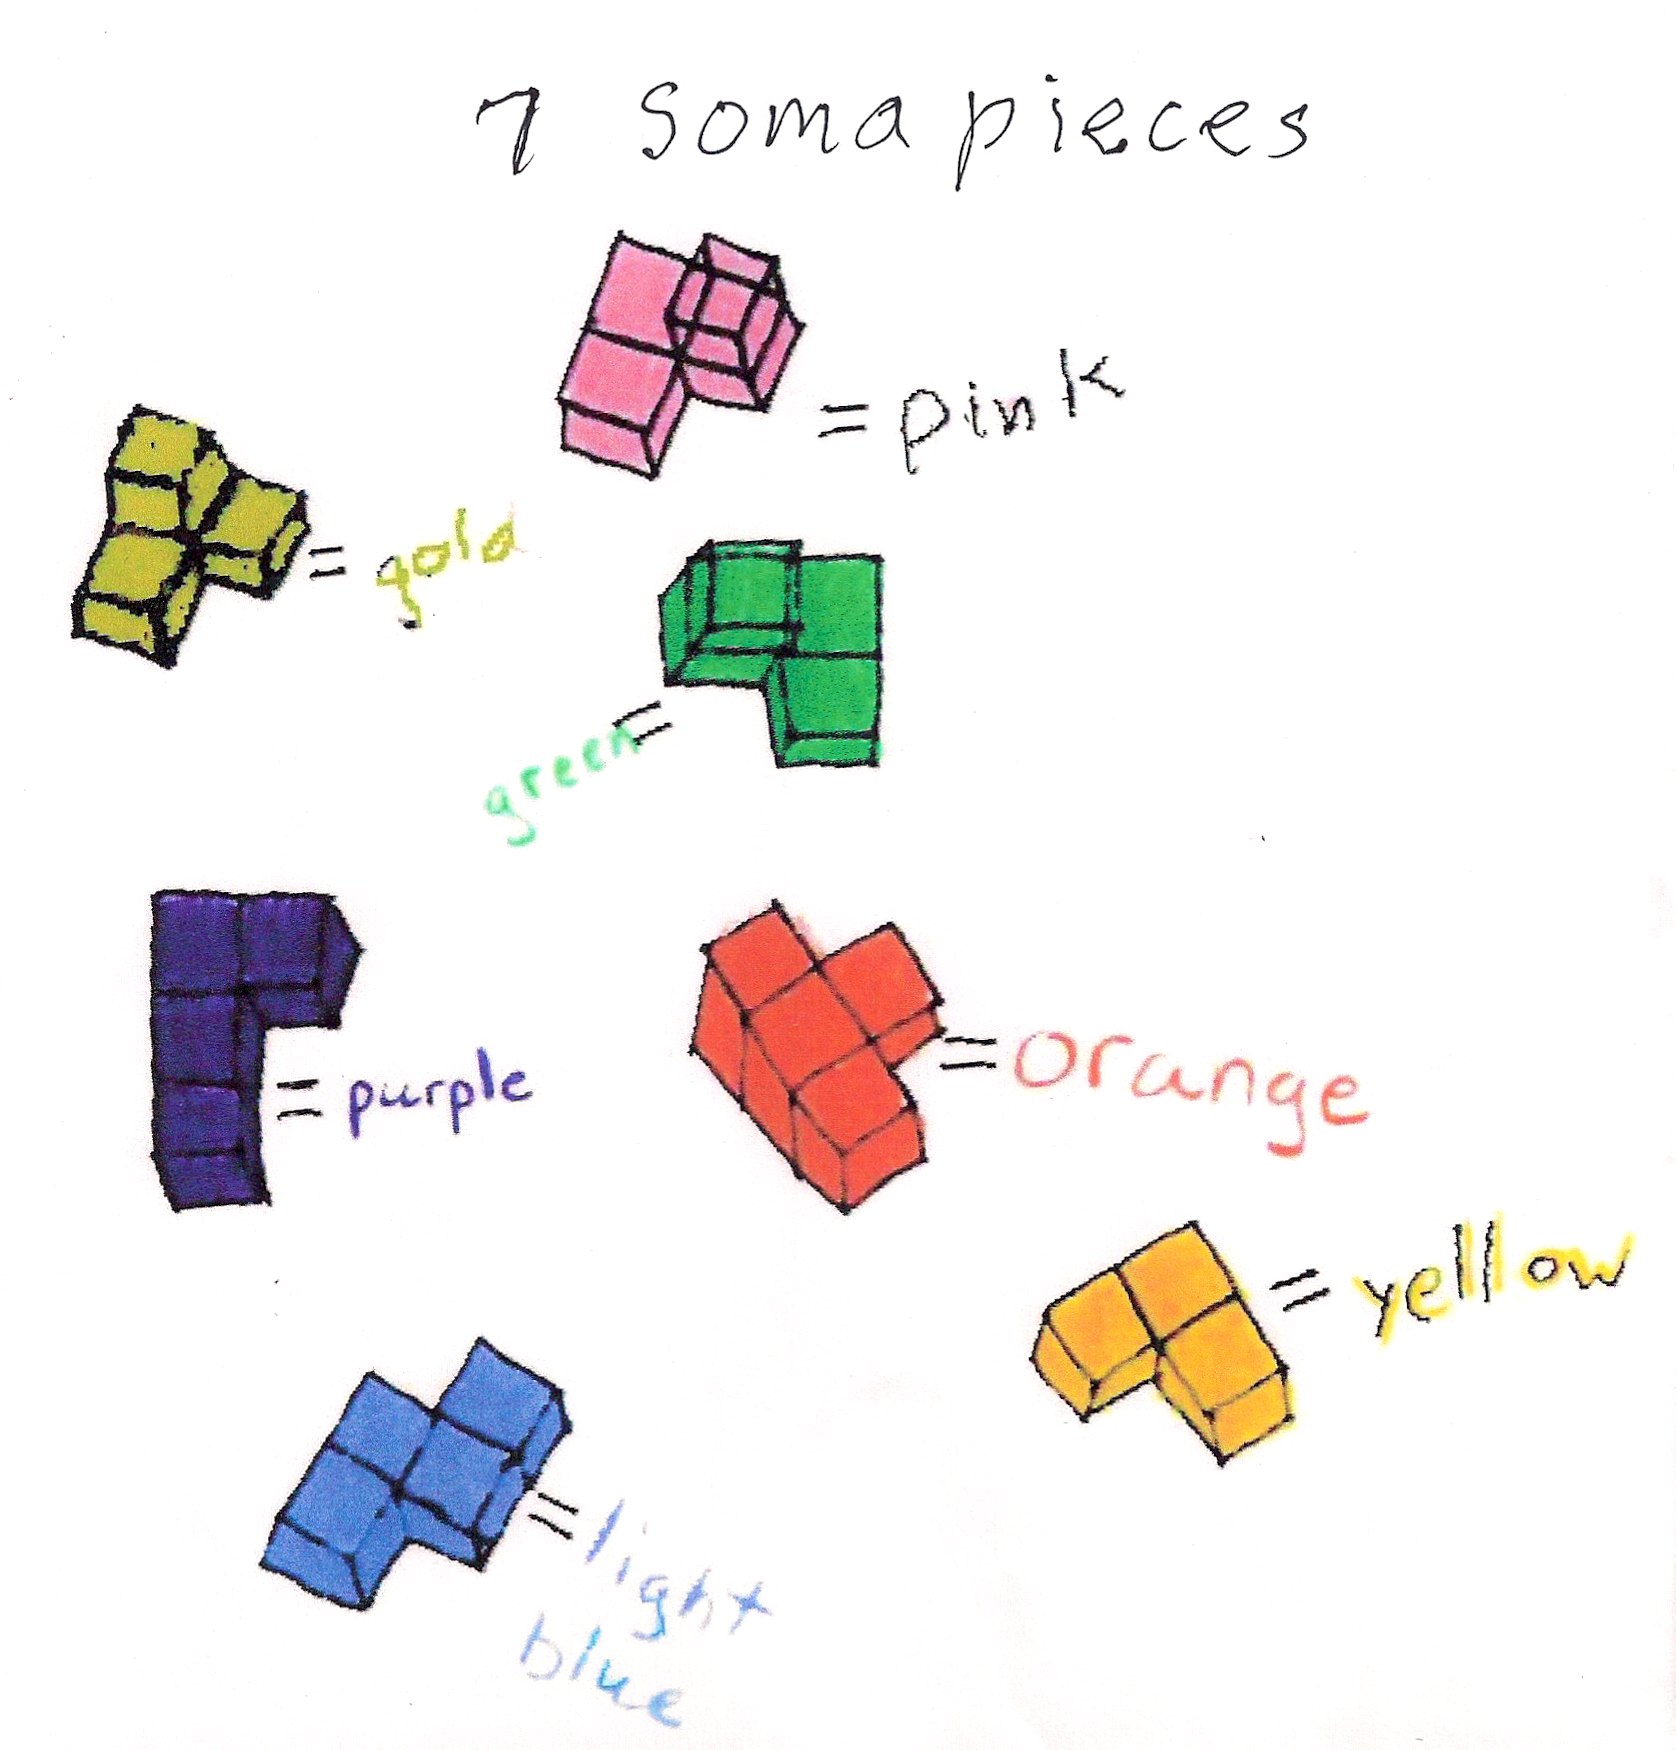 7 soma pieces
= pink
= gold
green =
= purple
= orange
= yellow
= light
blue